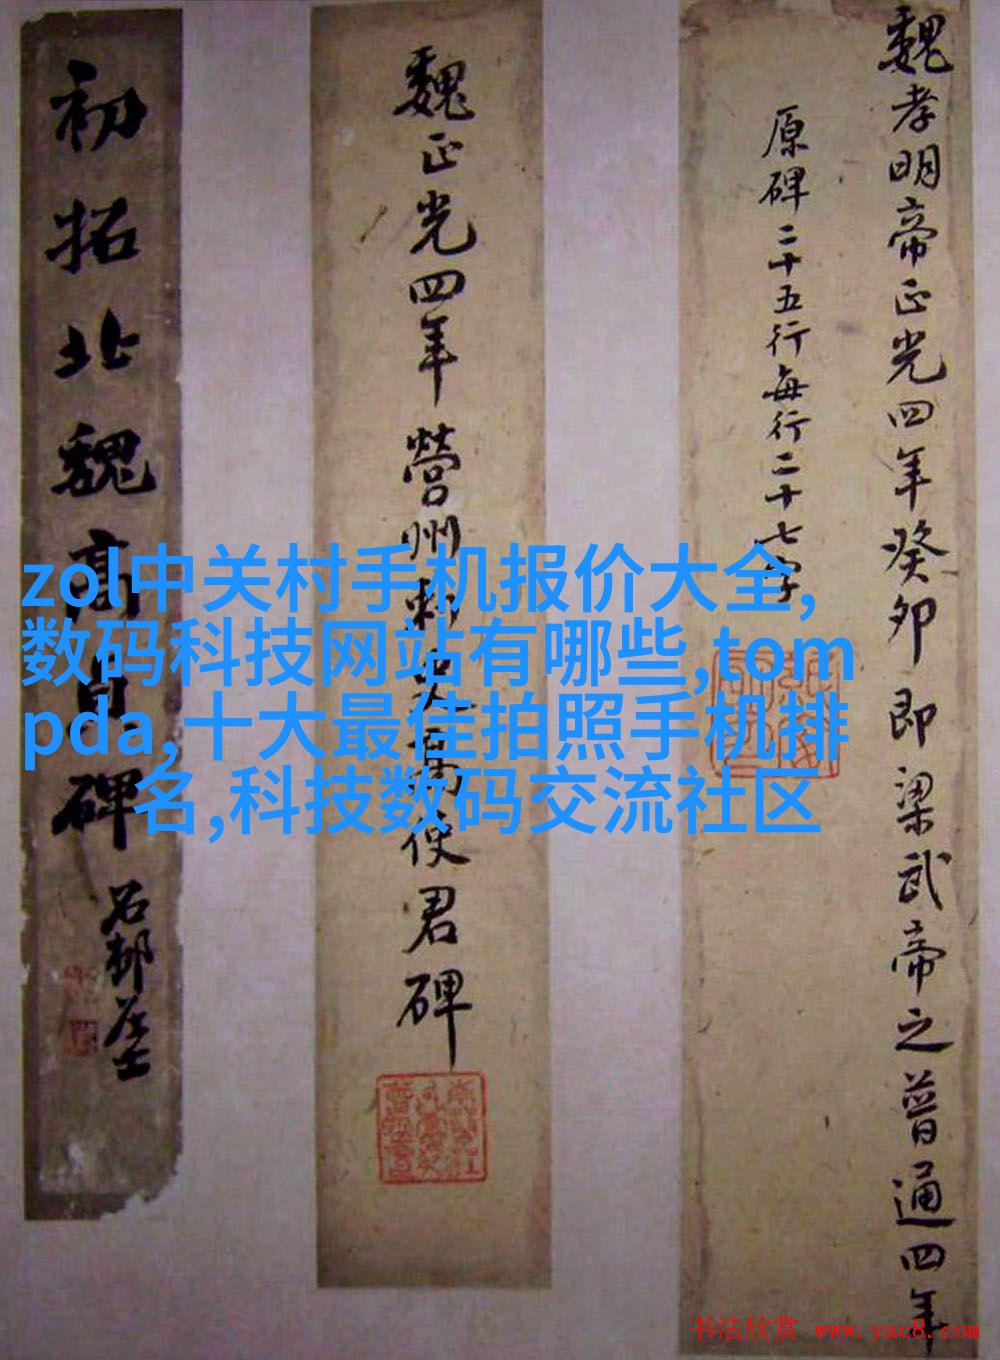 魏孝明帝正光四年癸卯即梁武帝之普通四年
原碑二十五行每行二十七字
魏正光四年營州刺史高使君碑
初拓北魏高貞碑
zol中关村手机报价大全,
数码科技网站有哪些,tom
pda,十大最佳拍照手机排
名,科技数码交流社区
书法欣赏 www.yac8.com